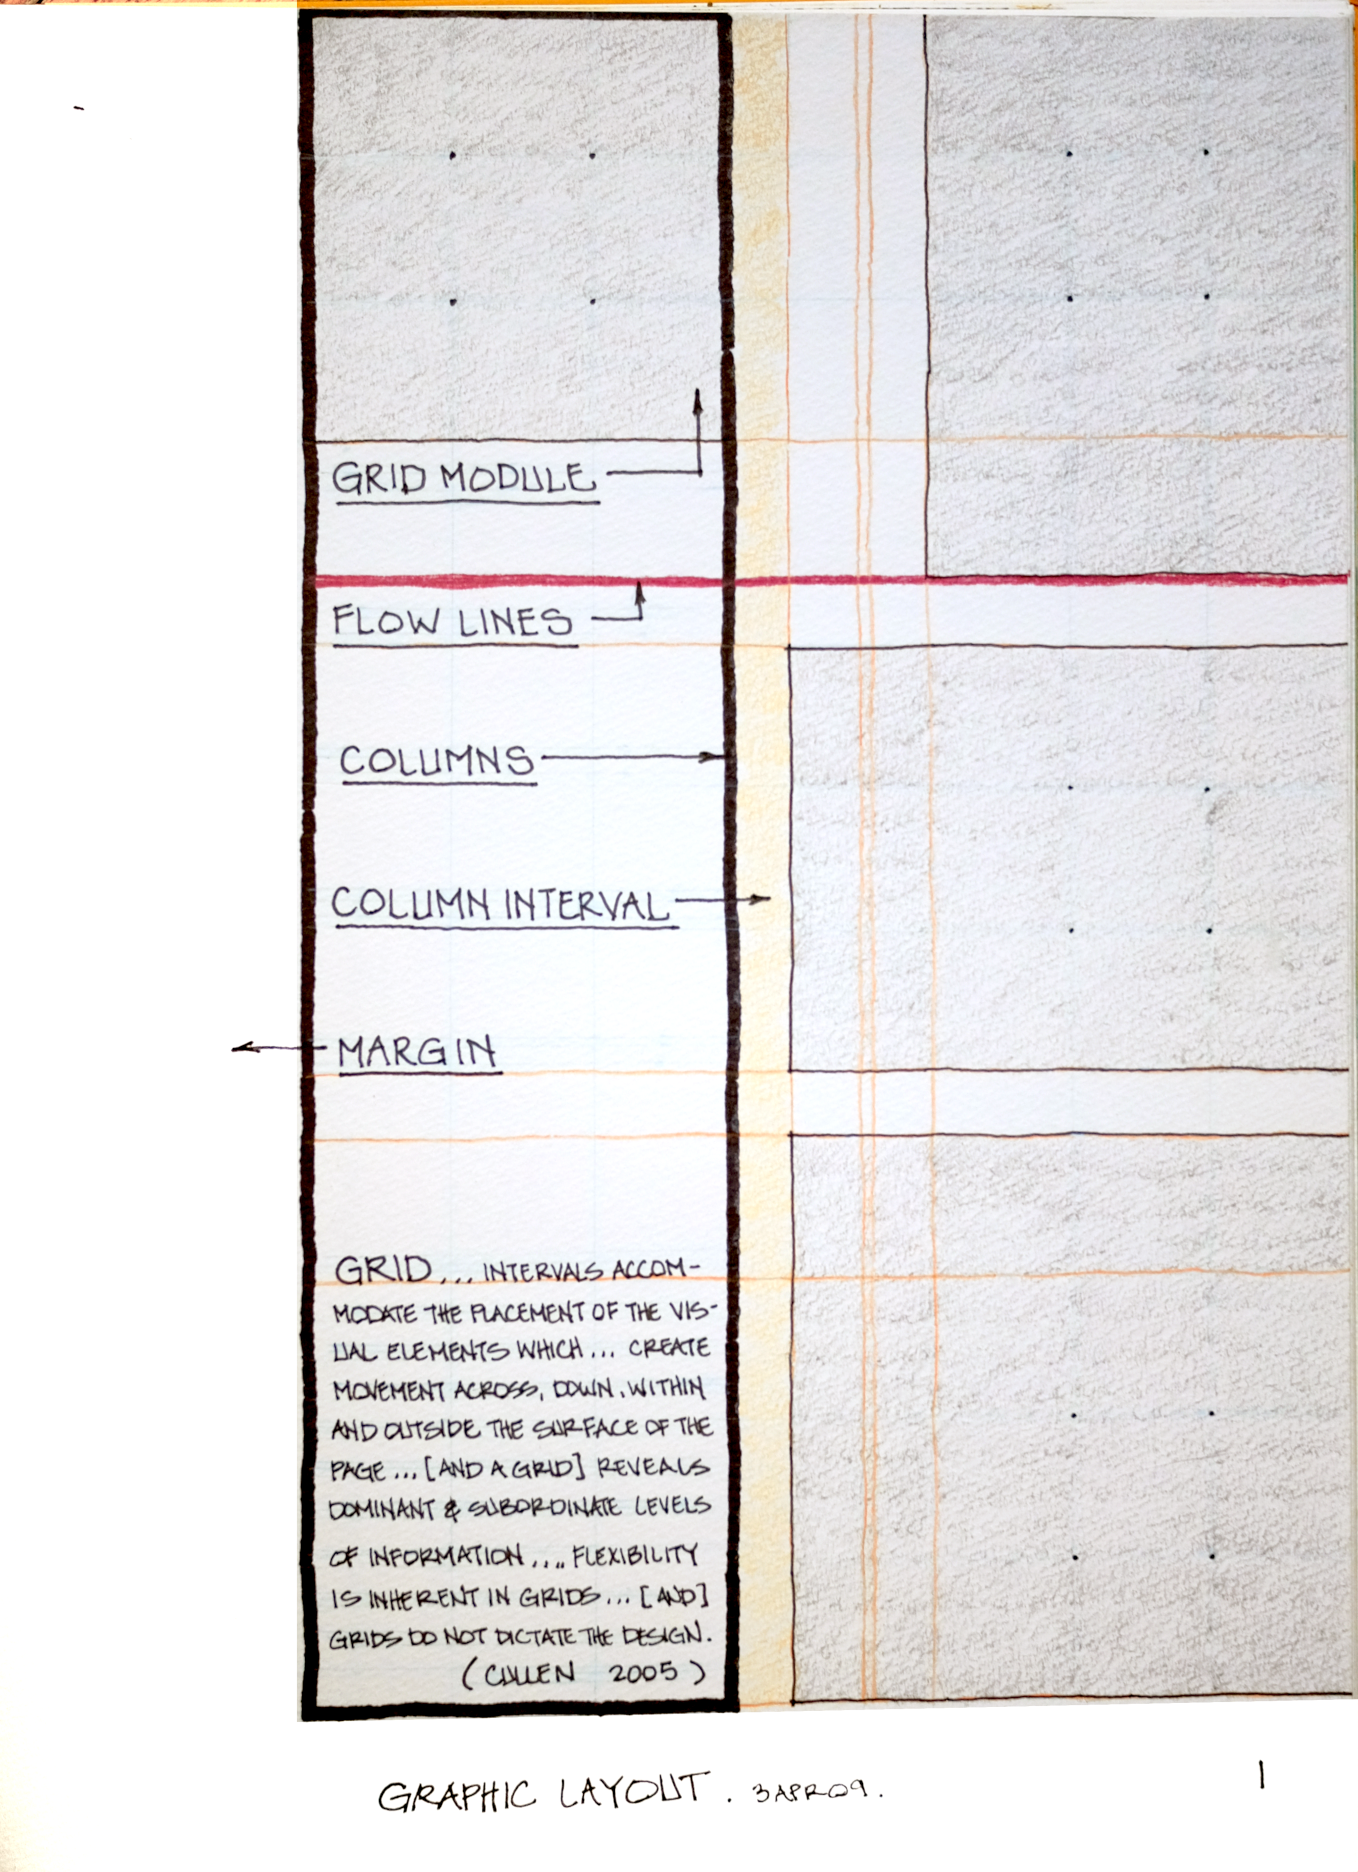 GRID MODULE
FLOW LINES
COLUMNS
COLUMN INTERVAL
MARGIN
GRID... INTERVALS ACCOM-
MODATE THE PLACEMENT OF THE VIS-
UAL ELEMENTS WHICH... CREATE
MOVEMENT ACROSS, DOWN, WITHIN
AND OUTSIDE THE SURFACE OF THE
PAGE... [AND A GRID] REVEALS
DOMINANT & SUBORDINATE LEVELS
OF INFORMATION.... FLEXIBILITY
IS INHERENT IN GRIDS... [AND]
GRIDS DO NOT DICTATE THE DESIGN.
(CULLEN 2005)
GRAPHIC LAYOUT. 3APR09.
1